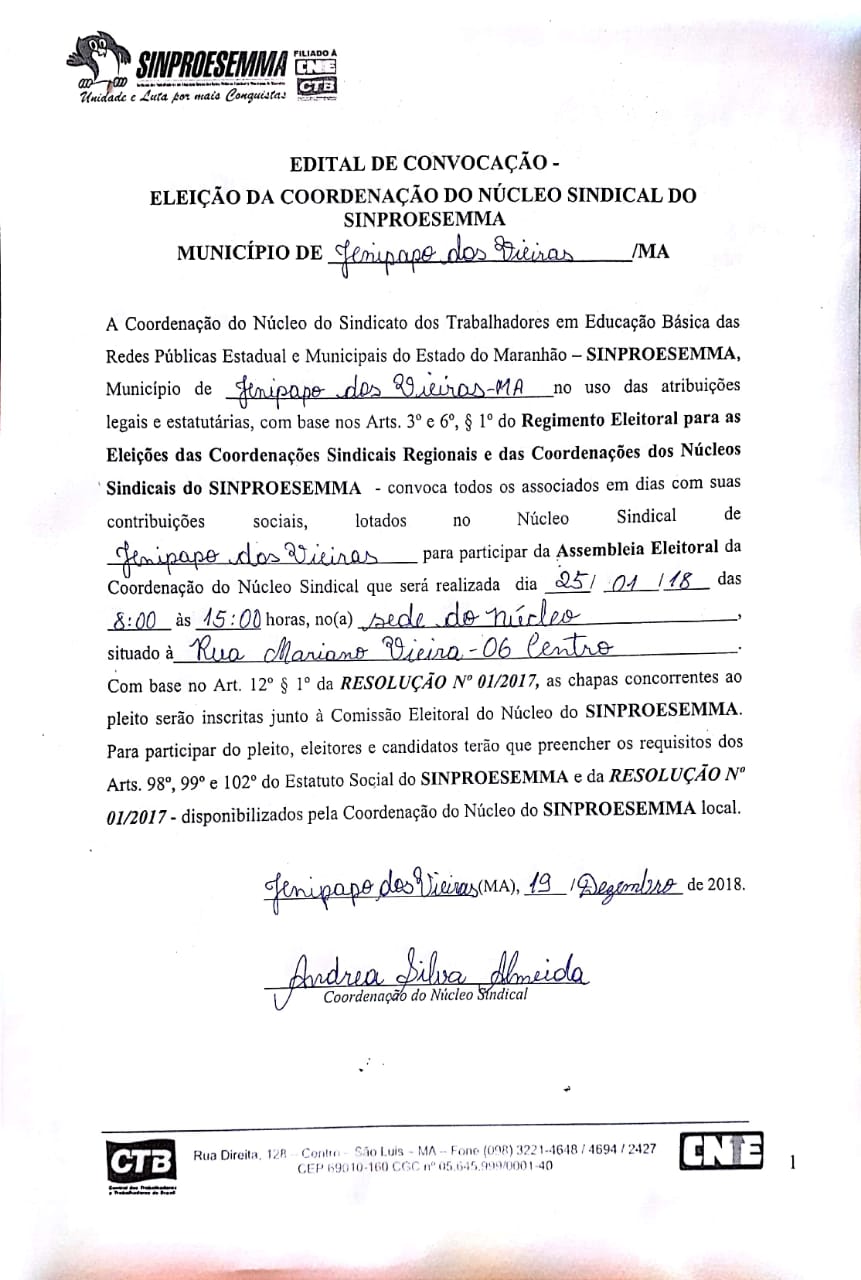 SINPROESEMMA
FILIADO À
CNE
CTB
Unidade e Luta por mais Conquistas
EDITAL DE CONVOCAÇÃO -
ELEIÇÃO DA COORDENAÇÃO DO NÚCLEO SINDICAL DO
SINPROESEMMA
MUNICÍPIO DE Jenipapo dos Vieiras /MA
A Coordenação do Núcleo do Sindicato dos Trabalhadores em Educação Básica das
Redes Públicas Estadual e Municipais do Estado do Maranhão – SINPROESEMMA,
Município de Jenipapo dos Vieiras-MA no uso das atribuições
legais e estatutárias, com base nos Arts. 3º e 6º, § 1º do Regimento Eleitoral para as
Eleições das Coordenações Sindicais Regionais e das Coordenações dos Núcleos
Sindicais do SINPROESEMMA - convoca todos os associados em dias com suas
contribuições sociais, lotados no Núcleo Sindical de
Jenipapo dos Vieiras para participar da Assembleia Eleitoral da
Coordenação do Núcleo Sindical que será realizada dia 25/ 01 /18 das
8:00 às 15:00 horas, no(a) sede do núcleo,
situado à Rua Mariano Vieira-06 Centro.
Com base no Art. 12º § 1º da RESOLUÇÃO Nº 01/2017, as chapas concorrentes ao
pleito serão inscritas junto à Comissão Eleitoral do Núcleo do SINPROESEMMA.
Para participar do pleito, eleitores e candidatos terão que preencher os requisitos dos
Arts. 98º, 99º e 102º do Estatuto Social do SINPROESEMMA e da RESOLUÇÃO Nº
01/2017 - disponibilizados pela Coordenação do Núcleo do SINPROESEMMA local.
Jenipapo dos Vieiras(MA), 19 /Dezembro de 2018.
Andrea Silva Almeida
Coordenação do Núcleo Sindical
CTB
Central dos Trabalhadores
e Trabalhadoras do Brasil
Rua Direita, 128 – Centro - São Luis - MA – Fone (098) 3221-4648 / 4694 / 2427
CEP 69010-160 CGC nº 05.645.999/0001-40
CNTE
1